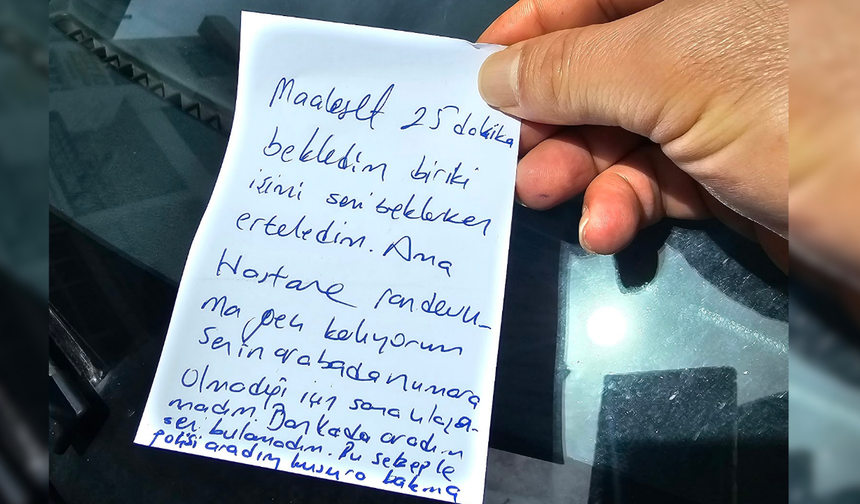 Maalesef 25 dakika
bekledim biriki
işimi seni beklerken
erteledim. Ama
Hastane randevu-
ma geç kalıyorum
Senin arabada numara
Olmadığı için sana ulaşa-
madım. Bankada aradım
seni bulamadım. Bu sebeple
polisi aradım kusura bakma